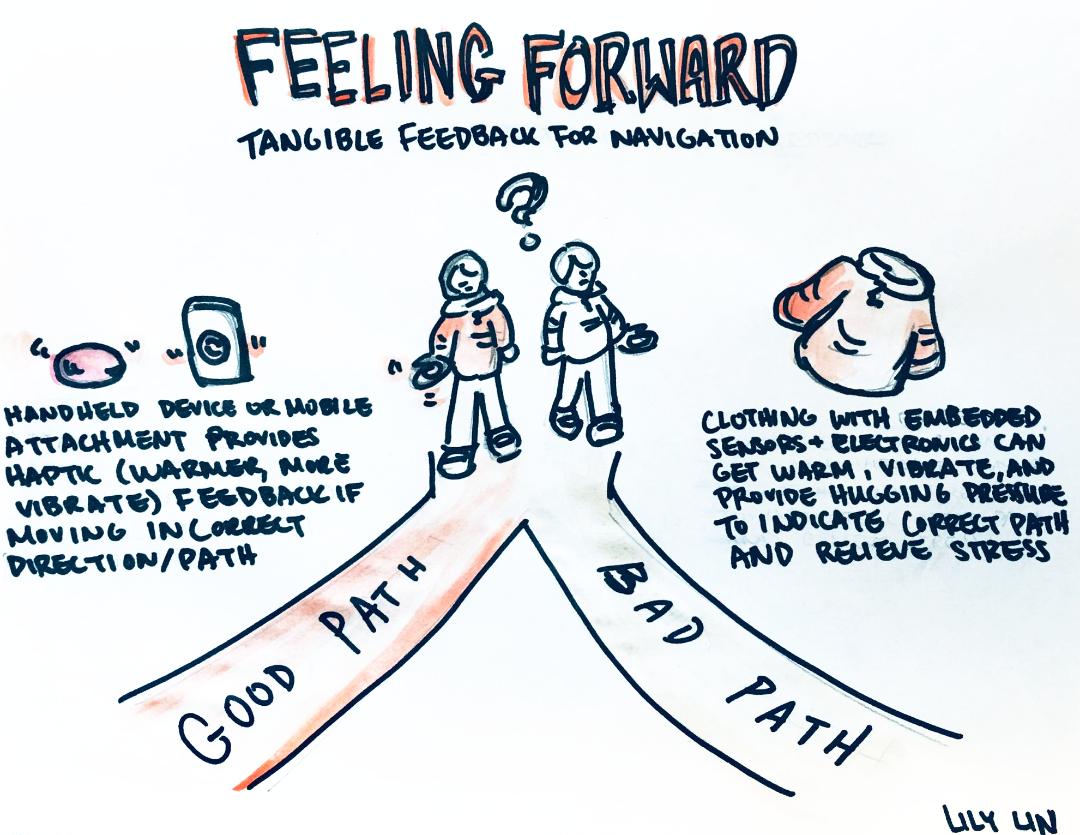 FEELING FORWARD
TANGIBLE FEEDBACK FOR NAVIGATION
?
HANDHELD DEVICE OR MOBILE
ATTACHMENT PROVIDES
HAPTIC (WARMER, MORE
VIBRATE) FEEDBACK IF
MOVING IN CORRECT
DIRECTION/PATH
CLOTHING WITH EMBEDDED
SENSORS + ELECTRONICS CAN
GET WARM, VIBRATE, AND
PROVIDE HUGGING PRESSURE
TO INDICATE CORRECT PATH
AND RELIEVE STRESS
GOOD PATH
BAD PATH
LILY LIN